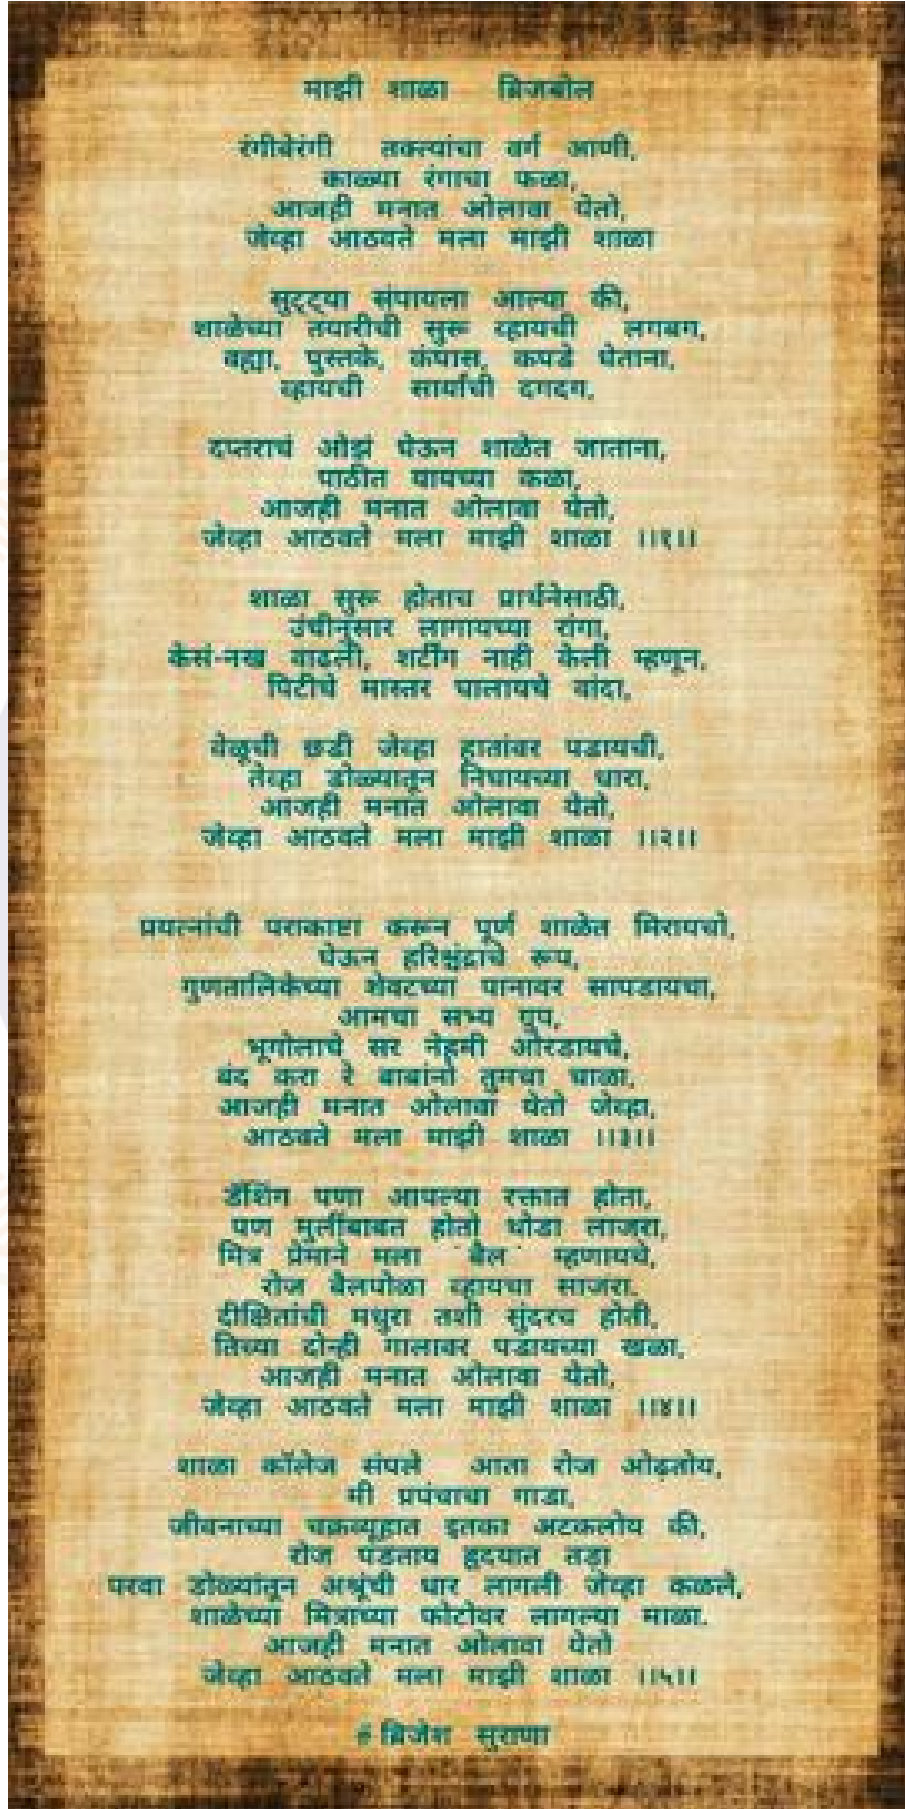 माझी शाळा ब्रिजबोल
रंगीबेरंगी तक्त्यांचा वर्ग आणी,
काळ्या रंगाचा फळा,
आजही मनात ओलावा येतो,
जेव्हा आठवते मला माझी शाळा
सुट्ट्या संपायला आल्या की,
शाळेच्या तयारीची सुरू व्हायची लगबग,
वह्या, पुस्तके, कंपास, कपडे घेताना,
व्हायची सार्यांची दगदग,
दप्तराचं ओझं घेऊन शाळेत जाताना,
पाठीत यायच्या कळा,
आजही मनात ओलावा येतो,
जेव्हा आठवते मला माझी शाळा ।।१।।
शाळा सुरू होताच प्रार्थनेसाठी,
उंचीनुसार लागायच्या रांगा,
केसं-नख वाढली, शर्टींग नाही केली म्हणून,
पिटीचे मास्तर घालायचे वांदा,
वेळूची छडी जेव्हा हातांवर पडायची,
तेव्हा डोळ्यातून निघायच्या धारा,
आजही मनात ओलावा येतो,
जेव्हा आठवते मला माझी शाळा ।।२।।
प्रयत्नांची पराकाष्टा करून पूर्ण शाळेत मिरायचो,
घेऊन हरिश्चंद्राचे रूप,
गुणतालिकेच्या शेवटच्या पानावर सापडायचा,
आमचा सभ्य ग्रुप,
भूगोलाचे सर नेहमी ओरडायचे,
बंद करा रे बाबांनो तुमचा चाळा,
आजही मनात ओलावा येतो जेव्हा,
आठवते मला माझी शाळा ।।३।।
डॅशिंग पणा आपल्या रक्तात होता,
पण मुलींबाबत होतो थोडा लाजरा,
मित्र प्रेमाने मला `बैल` म्हणायचे,
रोज बैलपोळा व्हायचा साजरा.
दीक्षितांची मथुरा तशी सुंदरच होती,
तिच्या दोन्ही गालावर पडायच्या खळा,
आजही मनात ओलावा येतो,
जेव्हा आठवते मला माझी शाळा ।।४।।
शाळा कॉलेज संपले आता रोज ओढतोय,
मी प्रपंचाचा गाडा,
जीवनाच्या चक्रव्यूहात इतका अटकलोय की,
रोज पडताय हृदयात तडा
परवा डोळ्यांतून अश्रूंची धार लागली जेव्हा कळले,
शाळेच्या मित्राच्या फोटोवर लागल्या माळा.
आजही मनात ओलावा येतो
जेव्हा आठवते मला माझी शाळा ।।५।।
ब्रिजेश सुराणा